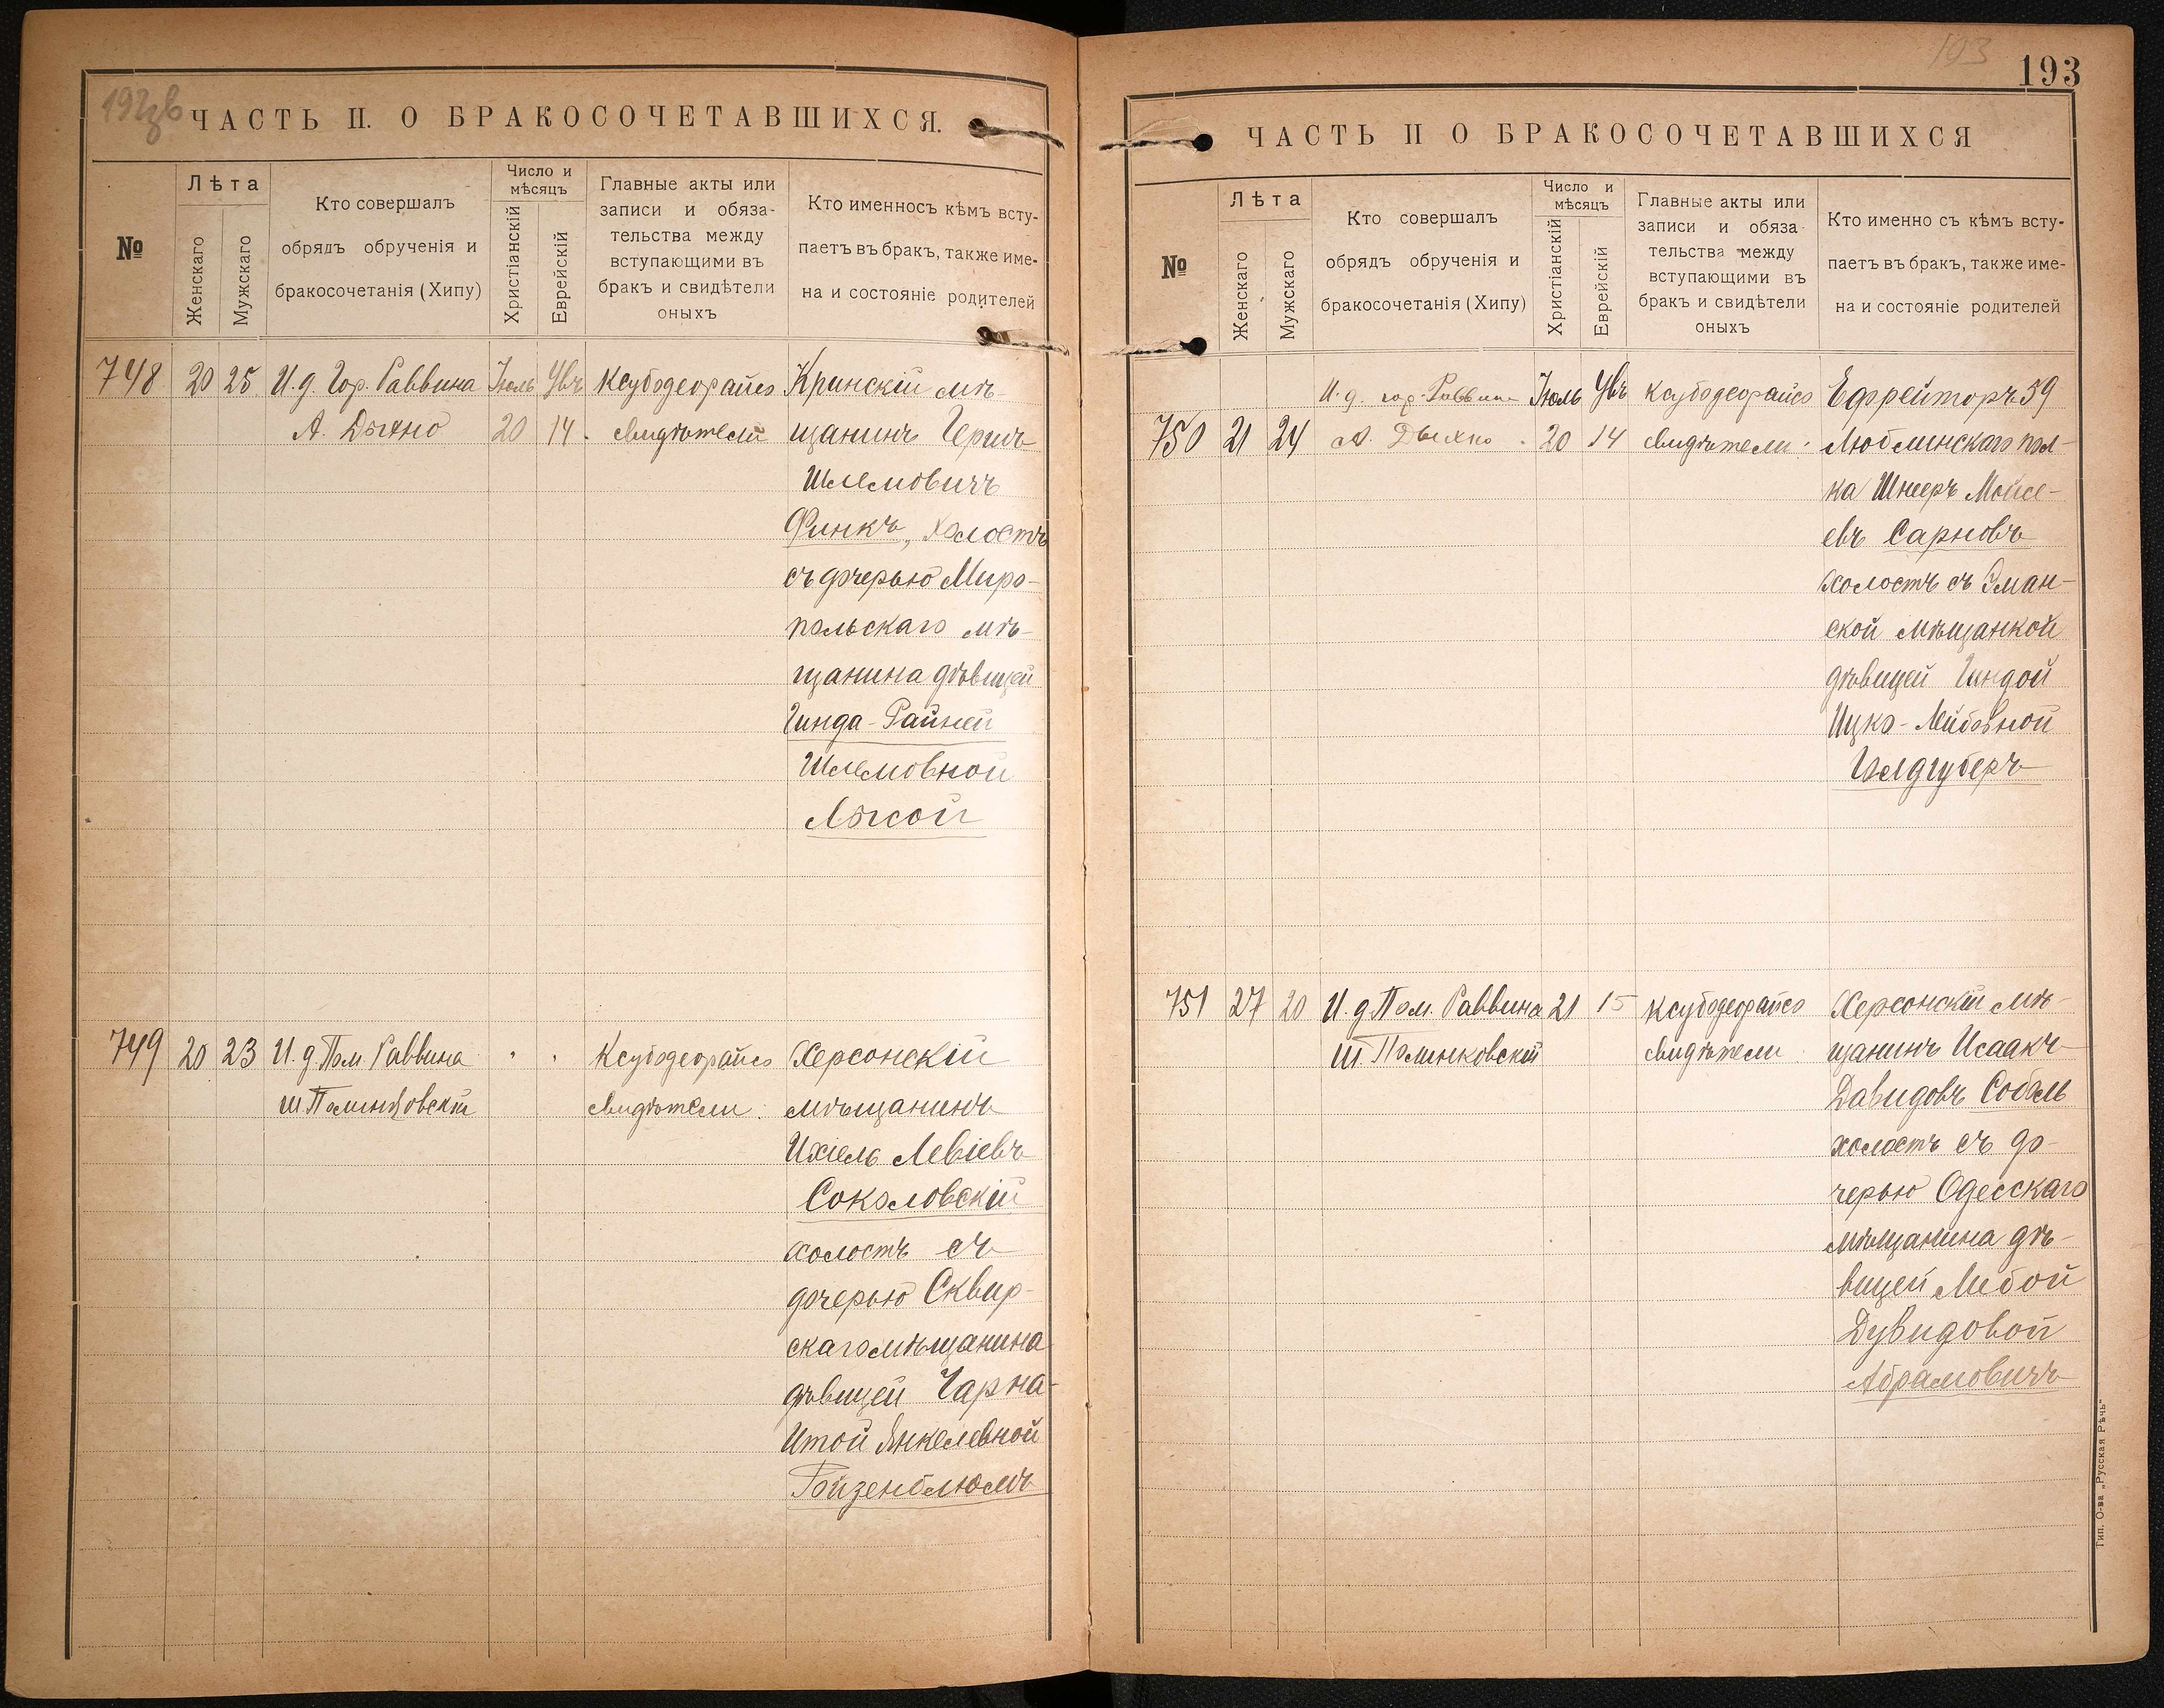 ЧАСТЬ II. О БРАКОСОЧЕТАВШИХСЯ.
№
Лѣта
Женскаго
Мужскаго
Кто совершалъ
обрядъ обрученія и
бракосочетанія (Хипу)
Число и
мѣсяцъ
Христіанскій
Еврейскій
Главные акты или
записи и обяза-
тельства между
вступающими въ
бракъ и свидѣтели
оныхъ
Кто именносъ кѣмъ всту-
паетъ въ бракъ, также име-
на и состояніе родителей
748 20 25 И. д. Гор. Раввина Іюль Увъ Ксубодеорайсо Кринскій мѣ-
А. Дыхно 20 14. свидѣтели щанинъ Гершъ
Шлемовичъ
Финкъ, холостъ
съ дочерью Миро-
польскаго мѣ-
щанина дѣвицей
Гинда-Райней
Шлемовной
749 20 23 И. д. Пом. Раввина " " Ксубодеорайсо Херсонскій
Ш. Полинковскій свидѣтели: мѣщанинъ
Ихіель Левіевъ
Соколовскій
холостъ съ
дочерью Сквир-
скаго мѣщанина
дѣвицей Чарна-
Итой Янкелевной
Ройзенблюмъ
193
193
ЧАСТЬ II О БРАКОСОЧЕТАВШИХСЯ
№
Лѣта
Женскаго
Мужскаго
Кто совершалъ
обрядъ обрученія и
бракосочетанія (Хипу)
Число и
мѣсяцъ
Христіанскій
Еврейскій
Главные акты или
записи и обяза
тельства между
вступающими въ
бракъ и свидѣтели
оныхъ
Кто именно съ кѣмъ всту-
паетъ въ бракъ, также име-
на и состояніе родителей
И. д. гор. Раввина Іюль Увъ Ксубодеорайсо Ефрейторъ 59
750 21 24 А. Дыхно. 20 14 свидѣтели: Люблинскаго пол-
ка Шнееръ Моисе-
евъ Сарновъ
холостъ съ Уман-
ской мѣщанкой
дѣвицей Гиндой
Ицко-Лейбовной
Голдгуберъ
751 27 20 И. д. Пом. Раввина 21 15 Ксубодеорайсо Херсонскій мѣ-
Ш. Полинковскій свидѣтели щанинъ Исаакъ
Давидовъ Собель
холостъ съ до-
черью Одесскаго
мѣщанина дѣ-
вицей Либой
Дувидовой
Абрамовичъ
Тип. О-ва „Русская Рѣчь"